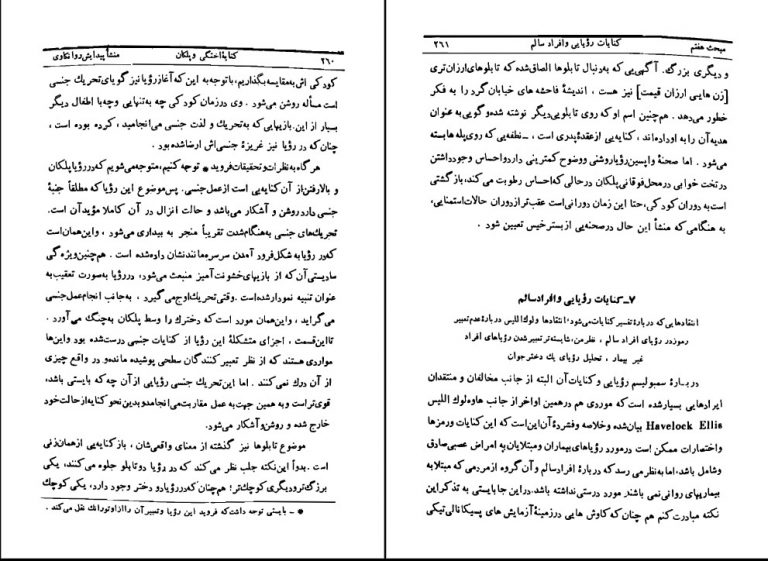 ۲۶۰ کنایهٔ آختگی و پلکان منشأ پیدایش روانکاوی
کودکی اش به مقایسه بگذاریم، با توجه به این که آغاز رؤیا نیز گویای تحریك جنسی
است مسأله روشن می‌شود . وی در زمان کودکی چه به تنهایی و چه با اطفال دیگر
بسیار از این بازیهایی که به تحریك و لذت جنسی می‌انجامید، کرده بوده است ،
چنان که در رؤیا نیز غریزهٔ جنسی‌اش ارضا شده بود .
هر گاه به نظرات و تحقیقات فروید * توجه کنیم، متوجه می‌شویم که در رؤیا پلکان
و بالا رفتن از آن کنایه‌یی است از عمل جنسی. پس موضوع این رؤیا که مطلقاً جنبهٔ
جنسی دارد روشن و آشکار می‌باشد و حالت انزال در آن کاملا مؤید آن است.
تحریك‌های جنسی به هنگام شدت تقریباً منجر به بیداری می‌شود ، و این همان است
که در رؤیا به شکل فرود آمدن سرسره مانندشان داده شده است . هم چنین ویژه گی
سادیستی آن که از بازیهای خشونت آمیز منبعث می‌شود، در رؤیا به صورت تعقیب به
عنوان تنبیه نمودار شده است . وقتی تحریك اوج می گیرد ، به جانب انجام عمل جنسی
می‌گراید ، و این همان مورد است که دخترك را وسط پلکان به چنگ می آورد .
تا این قسمت ، اجزای متشکلهٔ این رؤیا از کنایات جنسی درست شده بود و این‌ها
مواردی هستند که از نظر تعبیر کنندگان سطحی پوشیده مانده و در واقع چیزی
از آن درك نمی‌کنند . اما این تحریك جنسی رؤیایی از آن چه که بایستی باشد،
قوی‌تر است و به همین جهت به عمل مقاربت می‌انجامد و بدین نحو کنایه از حالت خود
خارج شده و روشن و آشکار می‌شود.
موضوع تابلوها نیز گذشته از معنای واقعی‌شان ، باز کنایه‌یی از همان زنی
است . بدواً این نکته جلب نظر می‌کند که در رؤیا دو تابلو جلوه می‌کنند، یکی
بزرگ‌تر و دیگری کوچك‌تر؛ هم چنان که در رؤیا دو دختر وجود دارد، یکی کوچك
* ـ بایستی توجه داشت که فروید این رؤیا و تعبیر آن را از اوتورانك نقل می‌کند .
مبحث هفتم کنایات رؤیایی و افراد سالم ۲۶۱
و دیگری بزرگ. آگهی‌یی که به دنبال تابلوها الصاق شده که تابلوهای ارزان تری
[زن هایی ارزان قیمت] نیز هست ، اندیشهٔ فاحشه های خیابان گرد را به فکر
خطور می‌دهد. هم چنین اسم او که روی تابلویی دیگر نوشته شده و گویی به عنوان
هدیه آن را به او داده‌اند ، کنایه‌یی از عقدهٔ پدری است ، ـ نطفه‌یی که روی پله‌ها بسته
می‌شود . اما صحنهٔ واپسین رؤیا روشنی و وضوح کمتری‌تی دارد و احساس وجود داشتن
در تخت خوابی در محل فوقانی پلکان در حالی که احساس رطوبت می‌کند، بازگشتی
است به دوران کودکی، حتا این زمان دورانی است عقب‌تر از دوران حالات استمنایی،
به هنگامی که منشأ این حال در صحنه‌یی از بستر خیس تعیین شود .
۷ـ کنایات رؤیایی و افراد سالم
انتقادهایی که دربارهٔ تفسیر کنایات می‌شود، انتقادها و لوك اللیس دربارهٔ عدم تعبیر
رموز در رؤیاهای افراد سالم ، نظر من، شایسته‌تر تعبیر شدن رؤیاهای افراد
غیر بیمار ، تحلیل رؤیای یك دختر جوان
در بـارهٔ سمبولیسم رؤیایی و کنایات آن البته از جانب مخالفان و منتقدان
ایرادهایی بسیار شده است که موردی هم در همین اواخر از جانب هاوه‌لوك اللیس
Havelock Ellis بیان شده و خلاصه و فشردهٔ آن این است که این کنایات و رمزها
و اختصارات ممکن است در مورد رؤیاهای بیماران و مبتلایان به امراض عصبی صادق
و شامل باشد، اما به نظر می رسد که دربارهٔ افراد سالم و آن گروه از مردمی که مبتلا به
بیماریهای روانی نمی باشند مورد درستی نداشته باشد. در این جا بایستی به تذکر این
نکته مبادرت کنم هم چنان که کاوش هایی در زمینهٔ آزمایش های پسیکانالی‌تیکی